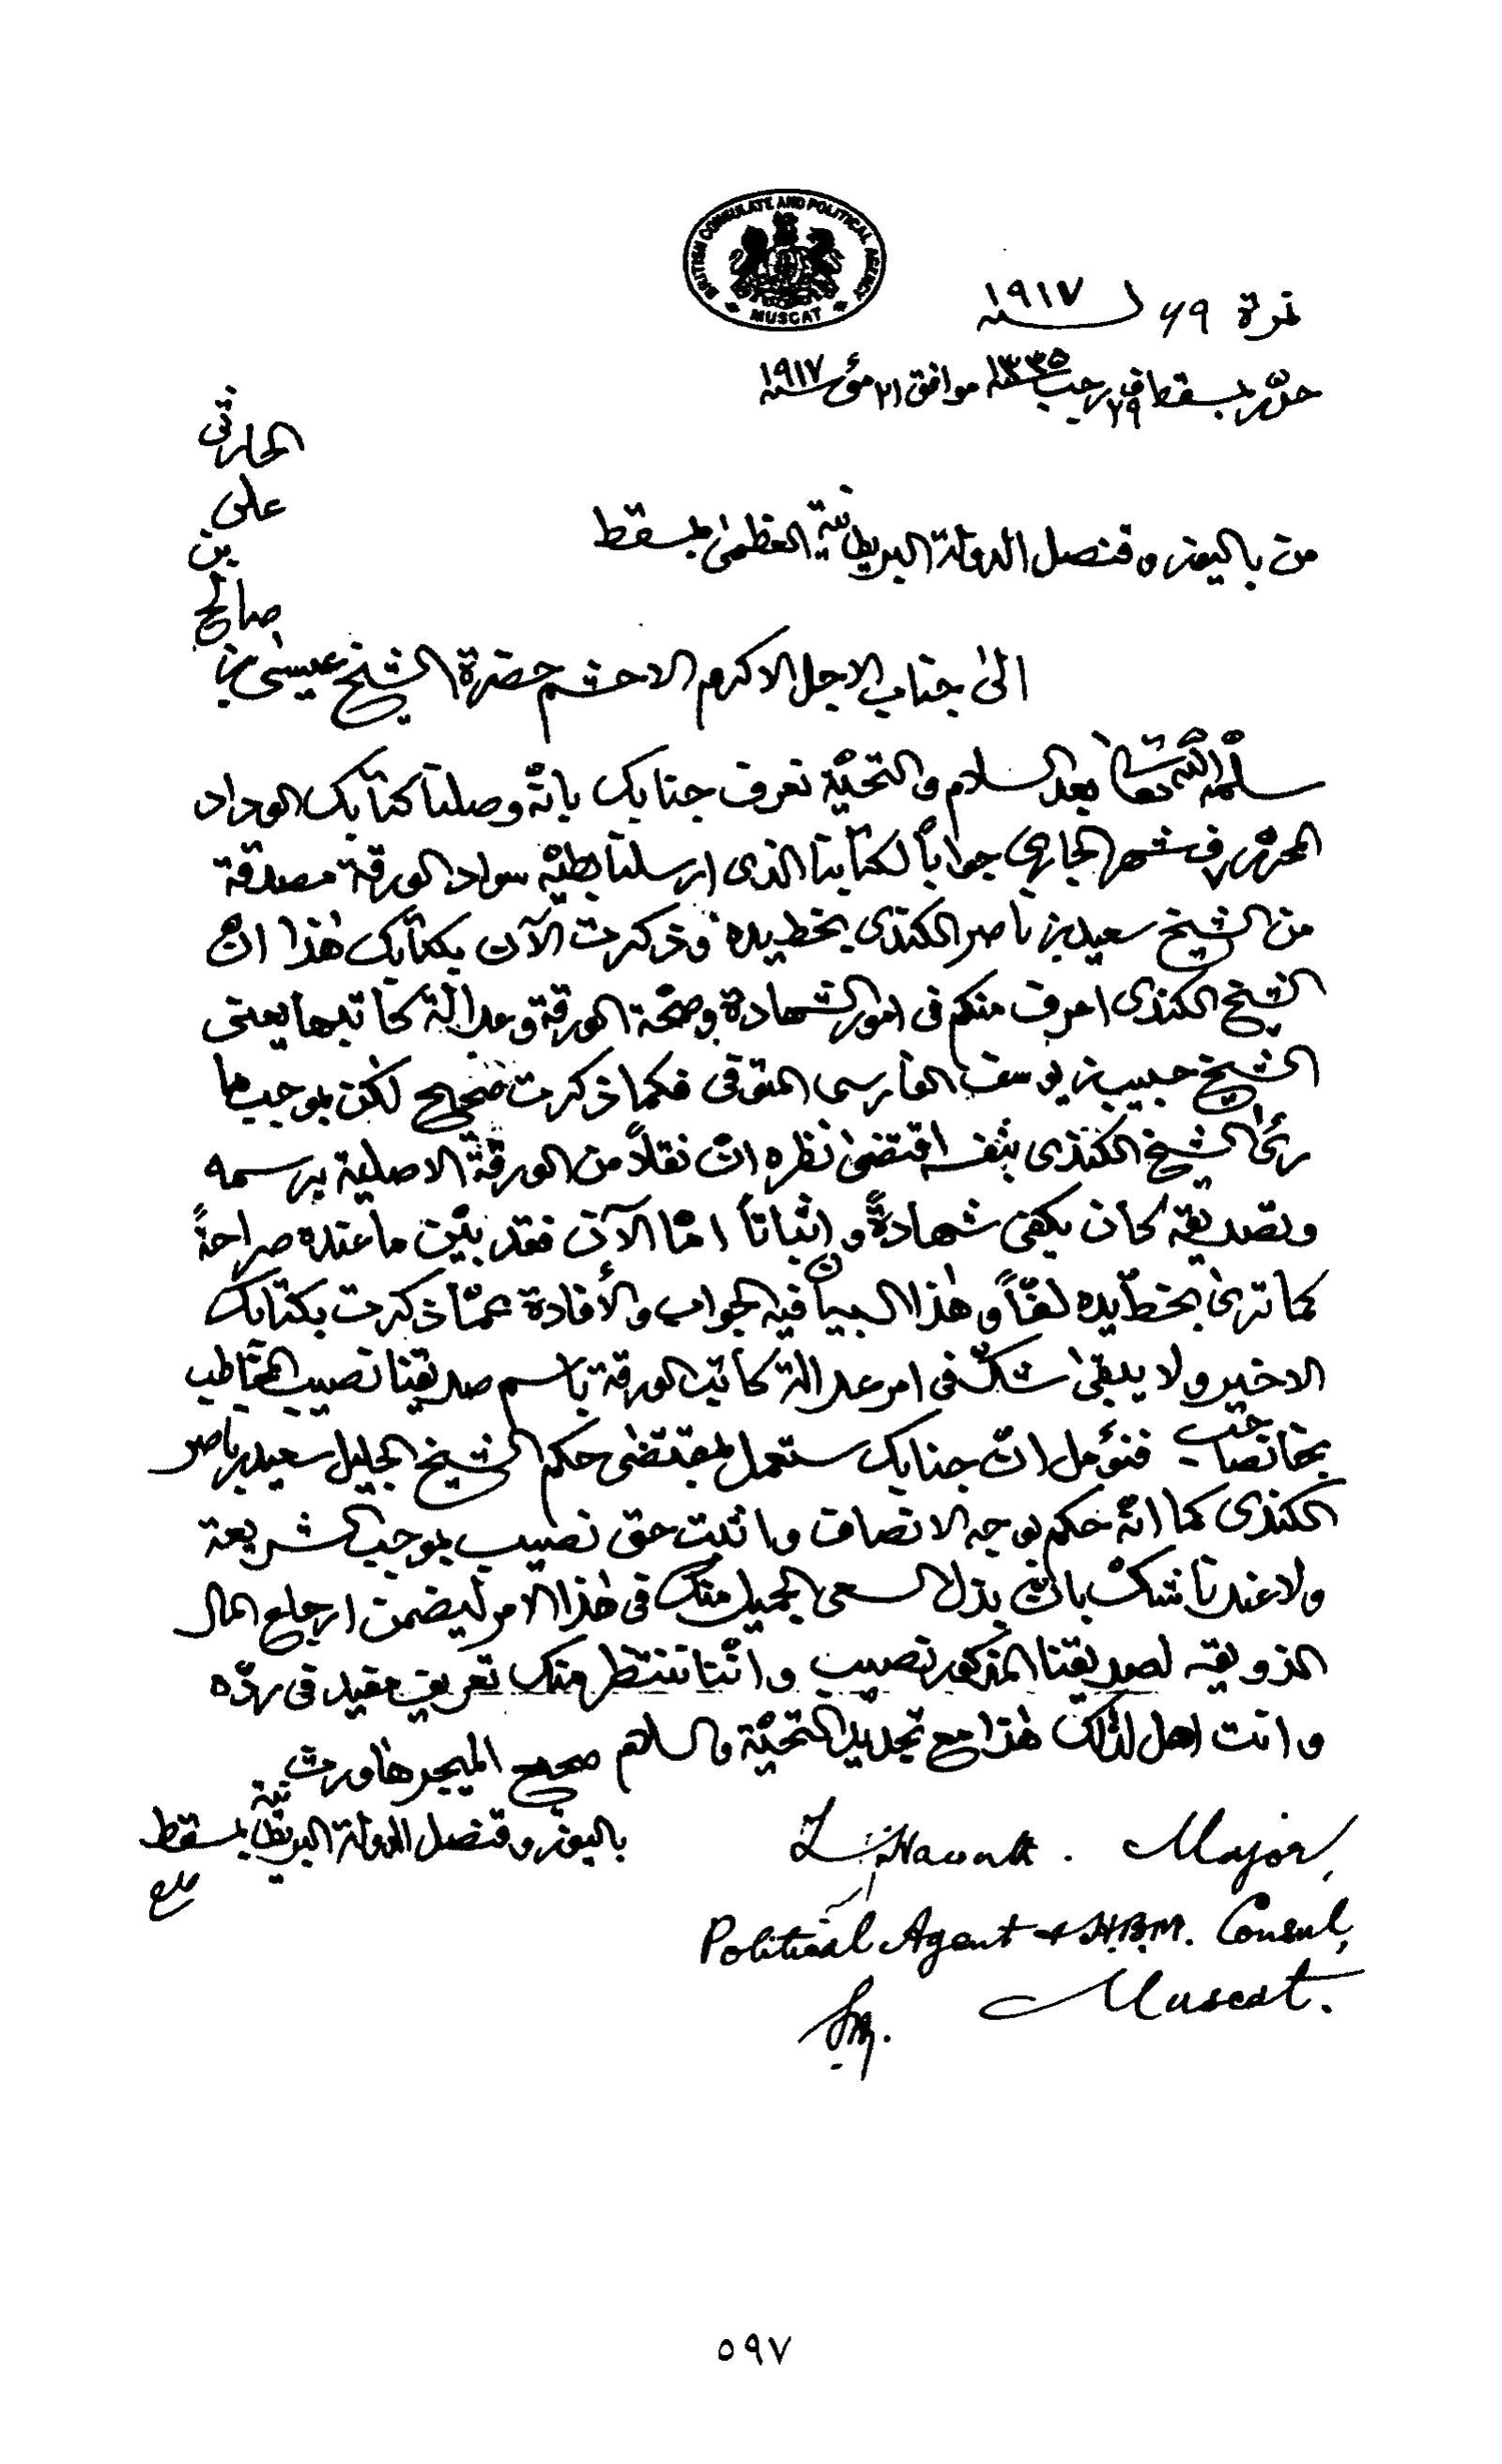 BRITISH CONSULATE AND POLITICAL AGENCY
MUSCAT
نمرة ٦٩ لسنه ١٩١٧
حرّر بمسقط في ٢٩ رجب سنه ١٣٣٥ موافق ٢١ مئ سنه ١٩١٧
من باليوز و قنصل الدولة البريطانية العظمىٰ بمسقط
الىٰ جناب الاجل الاكرم الاحشم حضرة الشيخ عيسىٰ بن
صالح
بن
على
الحارثى
سلّمه الله تعالىٰ بعد السلام والتحيّة نعرف جنابك بانّه وصلنا كتابك الوداد
المحرّر في شهر الجارى جواباً لكتابنا الذى ارسلنا بطيّه سواد الورقة مصدقة
من الشيخ سعيد بن ناصر الكندى بخط يده وذكرت الآن بكتابك هٰذا انّ
الشيخ الكندى اعرف منكم فى امور الشهادة وصحّة الورقة وعدالة كاتبها يعنى
الشيخ حبيب بن يوسف الفارسى المتوفى فكما ذكرت صحيح لٰكن بموجب ما
رئىٰ الشيخ الكندى بنفسه اقتضىٰ نظره انّ نقلاً من الورقة الاصلية برسمه
وتصديقه كان يكفى شهادةً و اثباتاً امّا الآن فقد بيّن ما عنده صراحةً
كما ترىٰ بخطّ يده لفّاً و هٰذا البيان فيه الجواب والأفادة عمّا ذكرت بكتابك
الاخير ولا يبقىٰ شكّ فى امر عدالة كاتب الورقة باسم صديقنا نصيب المخاطب
بخانصاحب فنؤمل انّ جنابك ستعمل بمقتضىٰ حكم الشيخ الجليل سعيد بن ناصر
الكندى كما انّه حكم بوجه الانصاف واثبت حق نصيب بموجب الشريعة
ولا عندنا شكّ بانّ بذل السعى الجميل منك فى هٰذا الامر ليضمن ارجاع المال
لصديقنا المذكور نصيب واننّا ننتظر منك تعريف مفيد فى ردّه
وانت اهل لذٰلك هٰذا مع تجديد التحيّة والسلام صحيح الميجر هاورث
باليوز و قنصل الدولة البريطانية بمسقط
L. Haworth. Major,
Political Agent & H.B.M. Consul,
Muscat.
٥٩٧